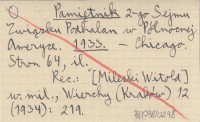 Pamiętnik 2-go Sejmu
Związku Podhalan w Północnej
Ameryce. 1933. - Chicago.
Stron 64, il.
Rec.: [Mileski Witold]
w. mil., Wierchy (Kraków) 12
(1934): 219.